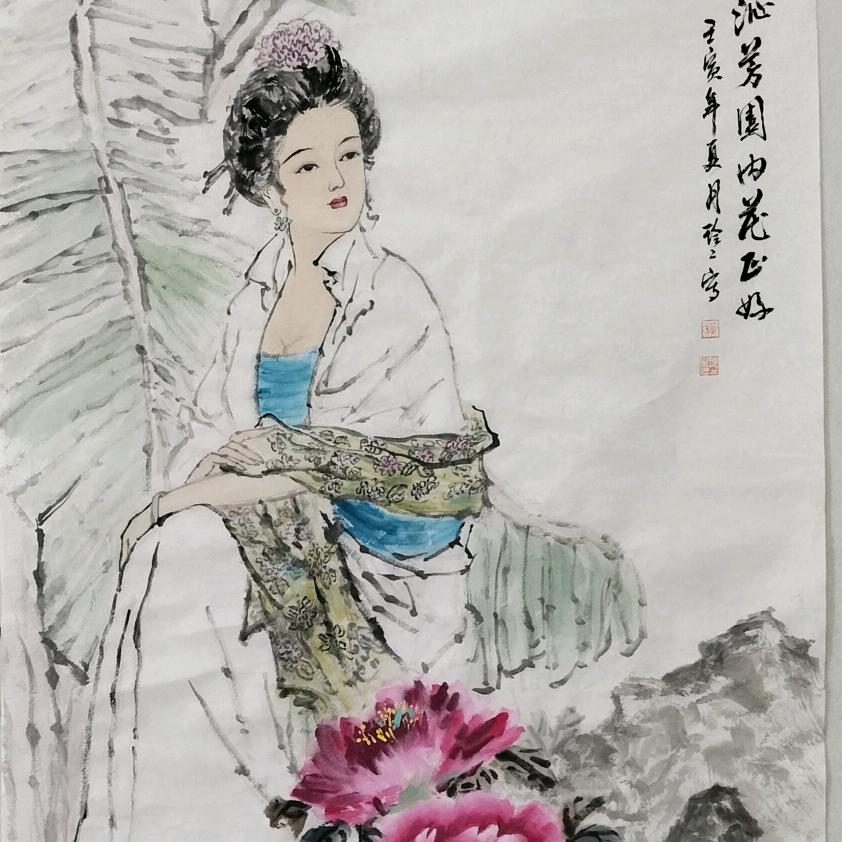 沁芳園内花正好
壬寅年夏月珍二寫